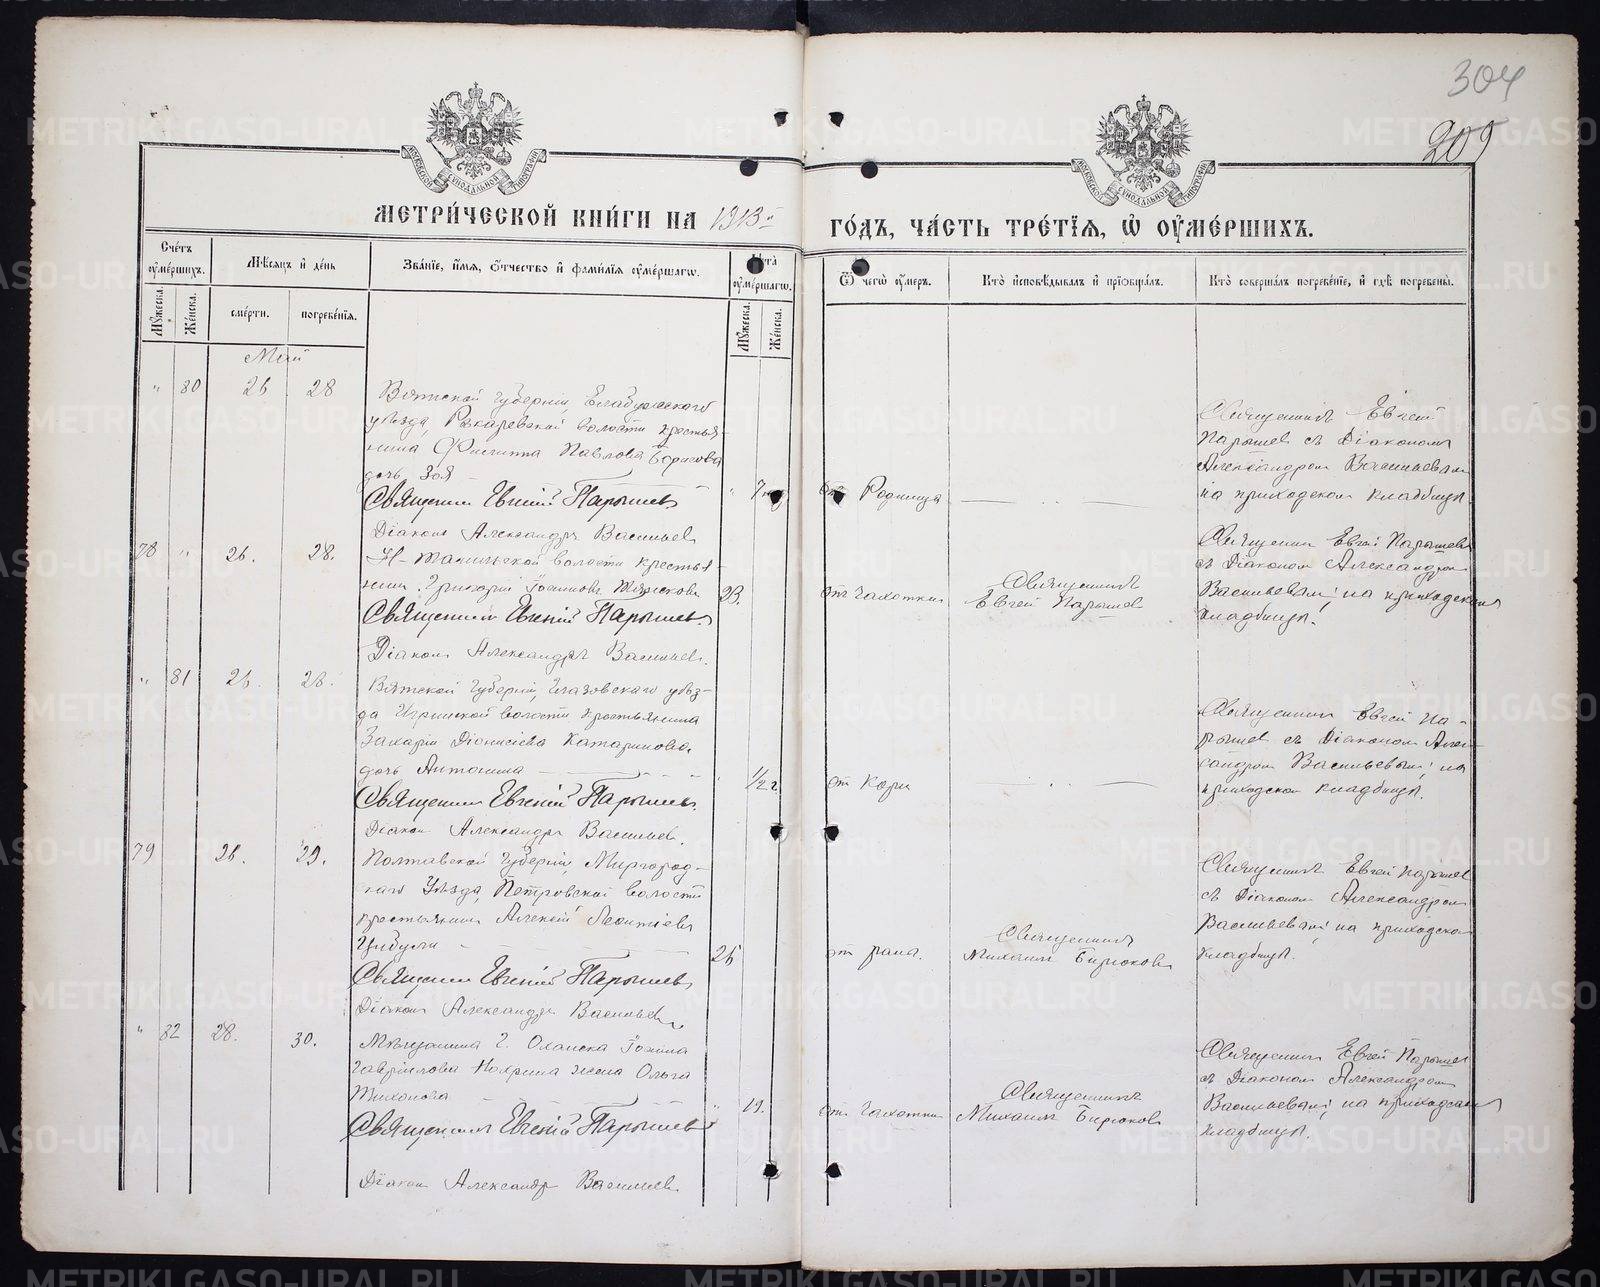 304
209
МОСКОВСКОЙ СѴНОДАЛЬНОЙ ТИПОГРАФІИ
МОСКОВСКОЙ СѴНОДАЛЬНОЙ ТИПОГРАФІИ
МЕТРИ́ЧЕСКОЙ КНИ́ГИ НА 1913 ГО́ДЪ, ЧА́СТЬ ТРЕ́ТЇѦ, Ѡ҆ ОУ҆МЕ́РШИХЪ.
Сче́тъ оу҆ме́ршихъ.
Мꙋ́жеска.
Же́нска.
Мѣ́сѧцъ и҆ де́нь
сме́рти.
погребе́нїѧ.
Зва́нїе, и҆́мѧ, ѻ҆́тчество и҆ фами́лїѧ оу҆ме́ршагѡ.
Лѣ́та оу҆ме́ршагѡ.
Мꙋ́жеска.
Же́нска.
Ѿ чегѡ̀ оу҆́меръ.
Кто̀ и҆сповѣ́дывалъ и҆ прїѡбща́лъ.
Кто̀ соверша́лъ погребе́нїе, и҆ гдѣ̀ погребены̀.
Май
" 80 26 28
Вятской губерніи, Елабужского
уѣзда, волости крестья-
нина Филиппа Павлова Борисова
дочь Зоя
" 7
Священник Евгеній Парышев
Діакон Александръ Васильев
от Родимца
Священникъ Евгеній
Парышев съ Діаконом
Александром Васильевым
на приходском кладбищѣ.
78 " 26. 28.
волости крестья-
нин Григорій
23.
Священник Евгеній Парышев
Діакон Александръ Васильев.
от чахотки
Священникъ
Евгеній Парышев
Священник Евгеній Парышев
съ Діаконом Александром
Васильевым, на приходском
кладбищѣ.
" 81 26. 28.
Вятской губерніи, Глазовскаго уѣз-
да Игринской волости крестьянина
Захарія Діонисіева
дочь Антонина
1/2 г.
Священник Евгеній Парышев.
Діакон Александръ Васильев.
от Кори
Священник Евгеній Па-
рышев съ Діаконом Алек-
сандром Васильевым, на
приходском кладбищѣ.
79 26. 29.
Полтавской губерніи, Миргород-
каго Уѣзда, Петровской волости
крестьянин Алексій Леонтіев
Цибуля
26
Священник Евгеній Парышев
Діакон Александръ Васильев.
от рака.
Священникъ
Михаилъ Бирюков
Священникъ Евгеній Парышев
съ Діаконом Александром
Васильевым, на приходском
кладбищѣ.
" 82 28. 30.
Мѣщанина г. Оханска
Гавриилова жена Ольга
Тихонова
" 19.
Священникъ Евгеній Парышев
Діакон Александр Васильев
от чахотки
Священникъ
Михаилъ Бирюков
Священник Евгеній Парышев
съ Діаконом Александром
Васильевым, на приходском
кладбищѣ.
METRIKI.GASO-URAL.RU